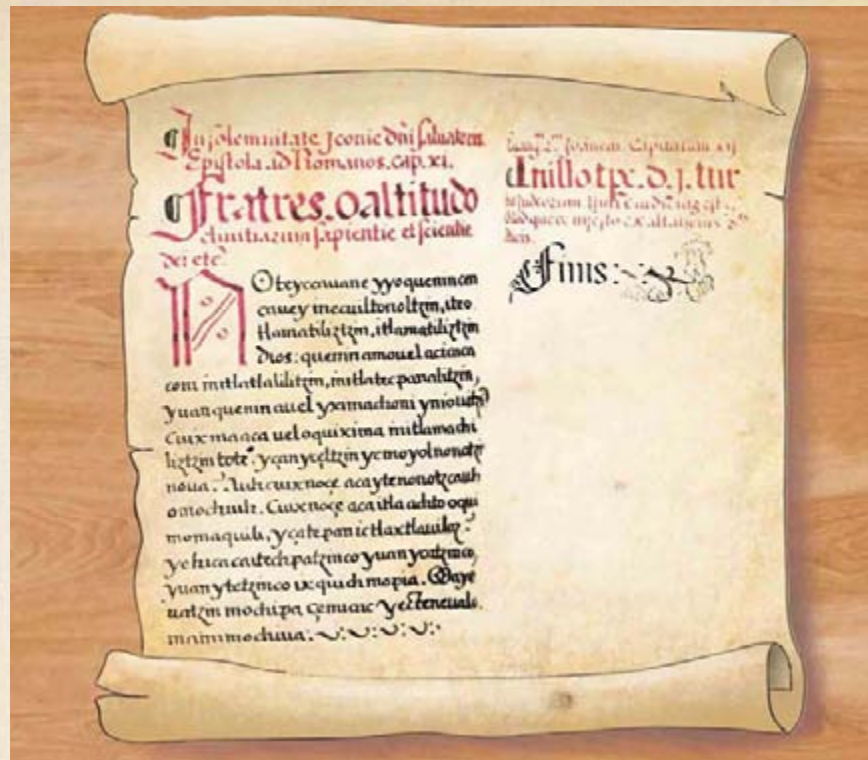 ¶ In solemnitate Iconie dñi saluatoris
Epistola. ad Romanos. cap. xi.
¶ Fratres. o altitudo
diuitiarum sapientie et scientie
dei etc
N Oteyccauane yyoquenin cen
cauey inecuiltonoltzin, iteo
tlamatiliztzin, itlamatiliztzin
Dios: quenin amo uel acicaca
coni initlatlalilitzin, initlatecpanalitzin,
yuan quenin auel yximachoni yniouh
Cuix maaca uel oquixima initlamachi
liztzin tote. ycan yceltzin yc moyolnonotz
noua. Auh cuix noçe aca ytenonotzcauh
omochiuh. Cuix noçe aca itla achto oqui
momaquili, yçatepan ic tlaxtlauiloz?
yehica ca itechpatzinco yuan ycatzinco,
yuan ytetzinco ixquich mopia. Maye
uatzin mochipa çemicac yecteneualo.
maiuimochiua:
Ioannem. Capitulum xij
¶ In illo tpr. D. J. tur
bis iudeorum. Nunc iudiciũ est
exaltatus
Finis: